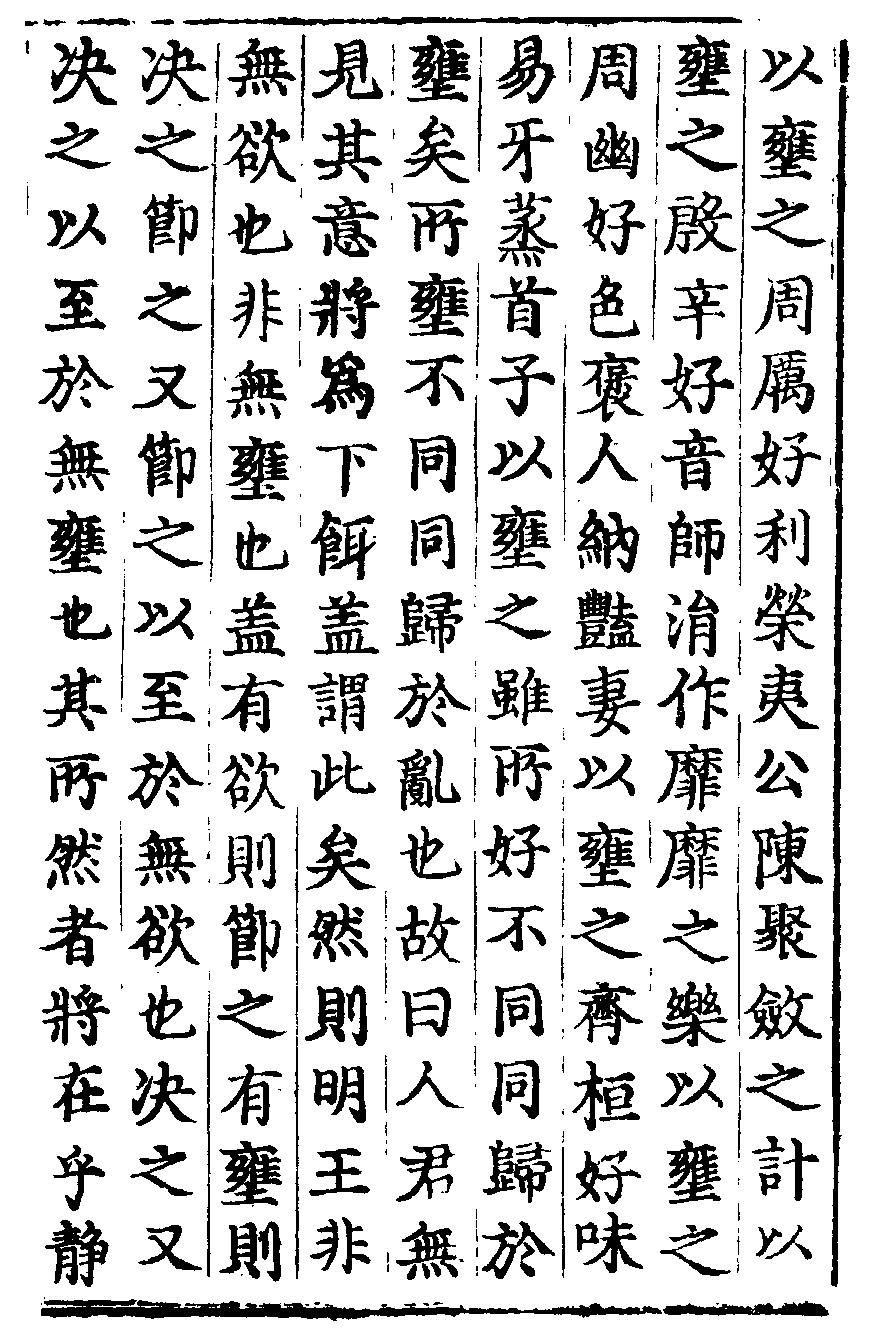 以壅之周厲好利榮夷公陳聚斂之計以
壅之殷辛好音師涓作靡靡之樂以壅之
周幽好色褒人納豔妻以壅之齊桓好味
易牙蒸首子以壅之雖所好不同同歸於
壅矣所壅不同同歸於亂也故曰人君無
見其意將為下餌蓋謂此矣然則明王非
無欲也非無壅也蓋有欲則節之有壅則
决之節之又節之以至於無欲也决之又
决之以至於無壅也其所然者將在乎静